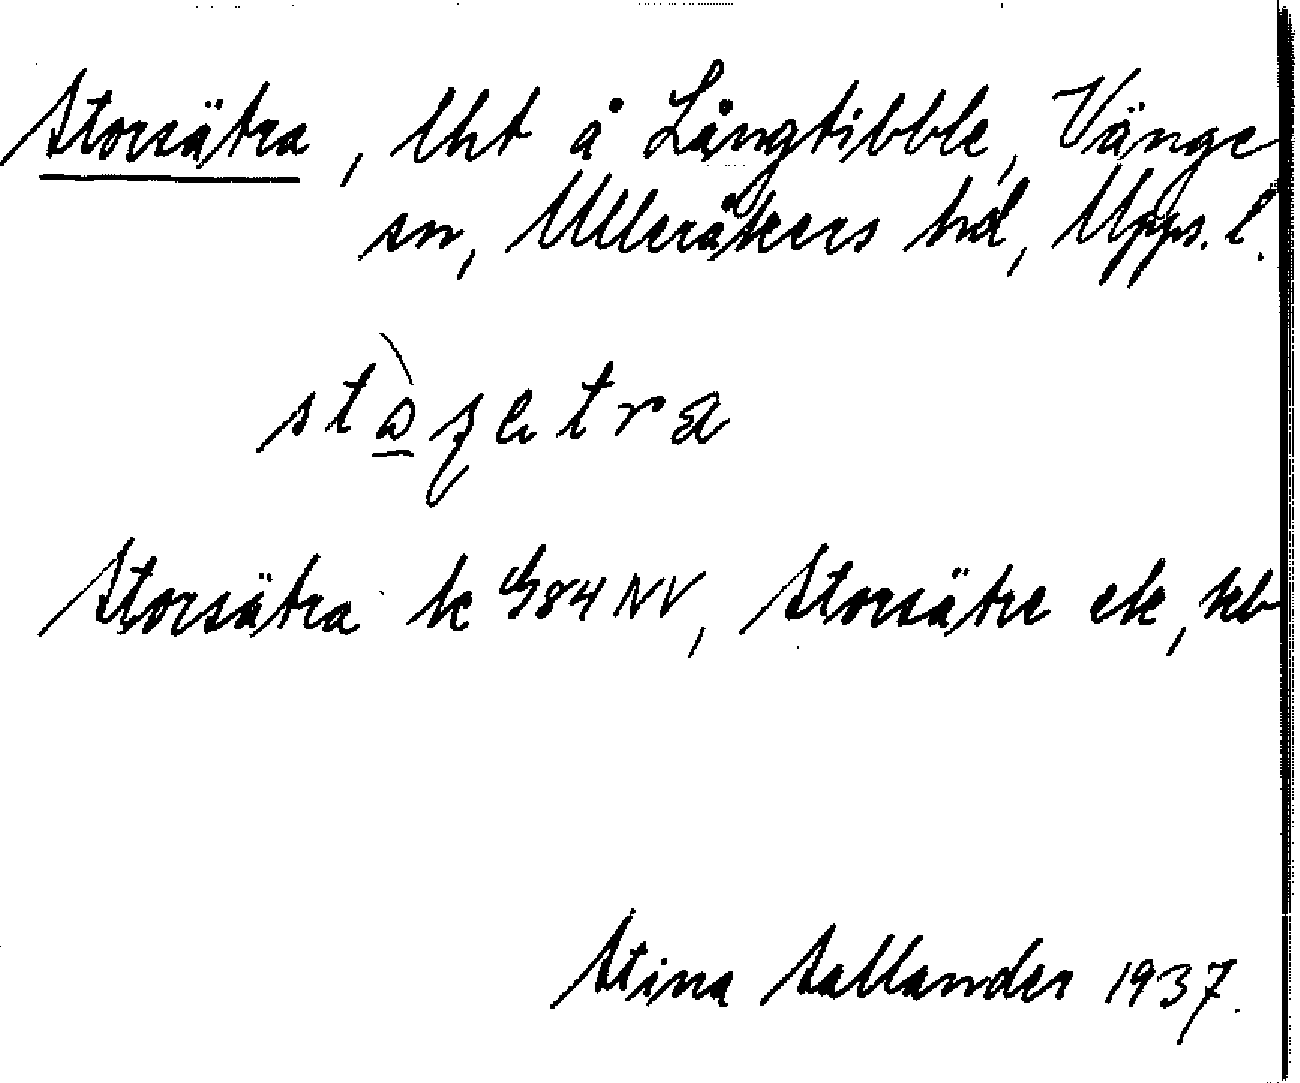 Storsätra, lht å Långtibble, Vänge
sn, Ulleråkers hd, Upps. l.
Storsätra k 984 NV, Storsätre ek, kb
Stina Sallander 1937.